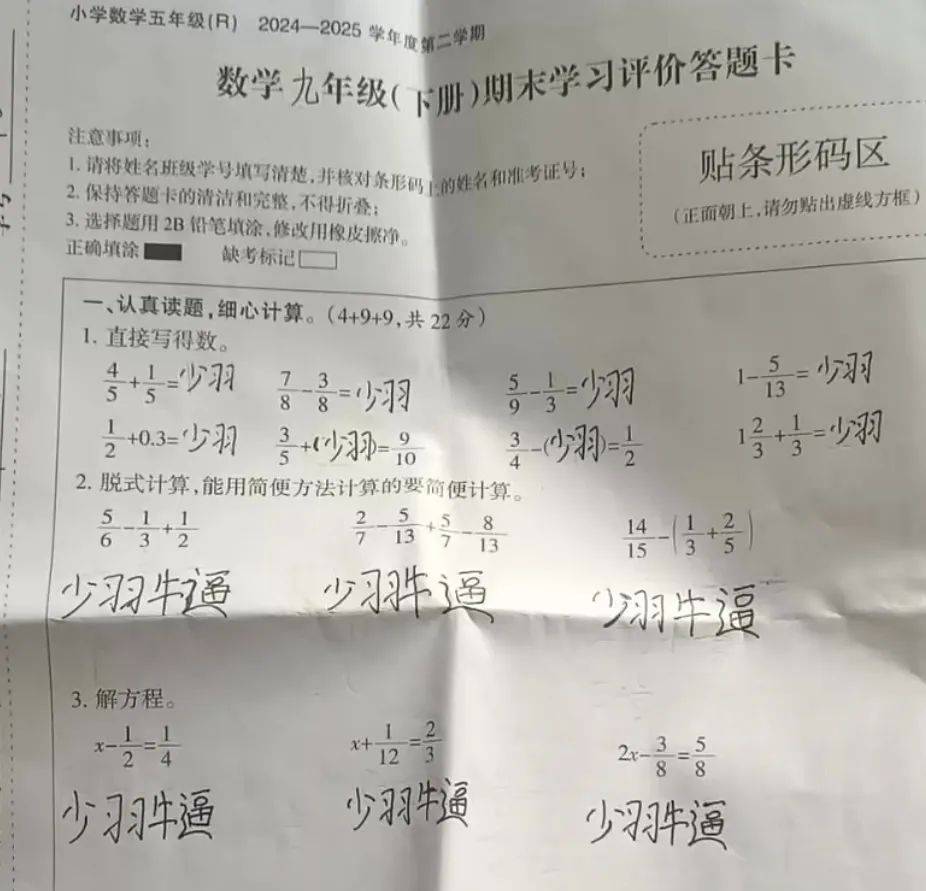 小学数学五年级(R) 2024—2025 学年度第二学期
数学九年级(下册)期末学习评价答题卡
注意事项:
1. 请将姓名班级学号填写清楚,并核对条形码上的姓名和准考证号;
2. 保持答题卡的清洁和完整,不得折叠;
3. 选择题用 2B 铅笔填涂,修改用橡皮擦净。
正确填涂 缺考标记
贴条形码区
(正面朝上,请勿贴出虚线方框)
一、认真读题,细心计算。(4+9+9,共 22 分)
1. 直接写得数。
4/5+1/5=少羽 7/8-3/8=少羽 5/9-1/3=少羽 1-5/13=少羽
1/2+0.3=少羽 3/5+(少羽)=9/10 3/4-(少羽)=1/2 1 2/3+1/3=少羽
2. 脱式计算,能用简便方法计算的要简便计算。
5/6-1/3+1/2 2/7-5/13+5/7-8/13 14/15-(1/3+2/5)
少羽牛逼 少羽牛逼 少羽牛逼
3. 解方程。
x-1/2=1/4 x+1/12=2/3 2x-3/8=5/8
少羽牛逼 少羽牛逼 少羽牛逼